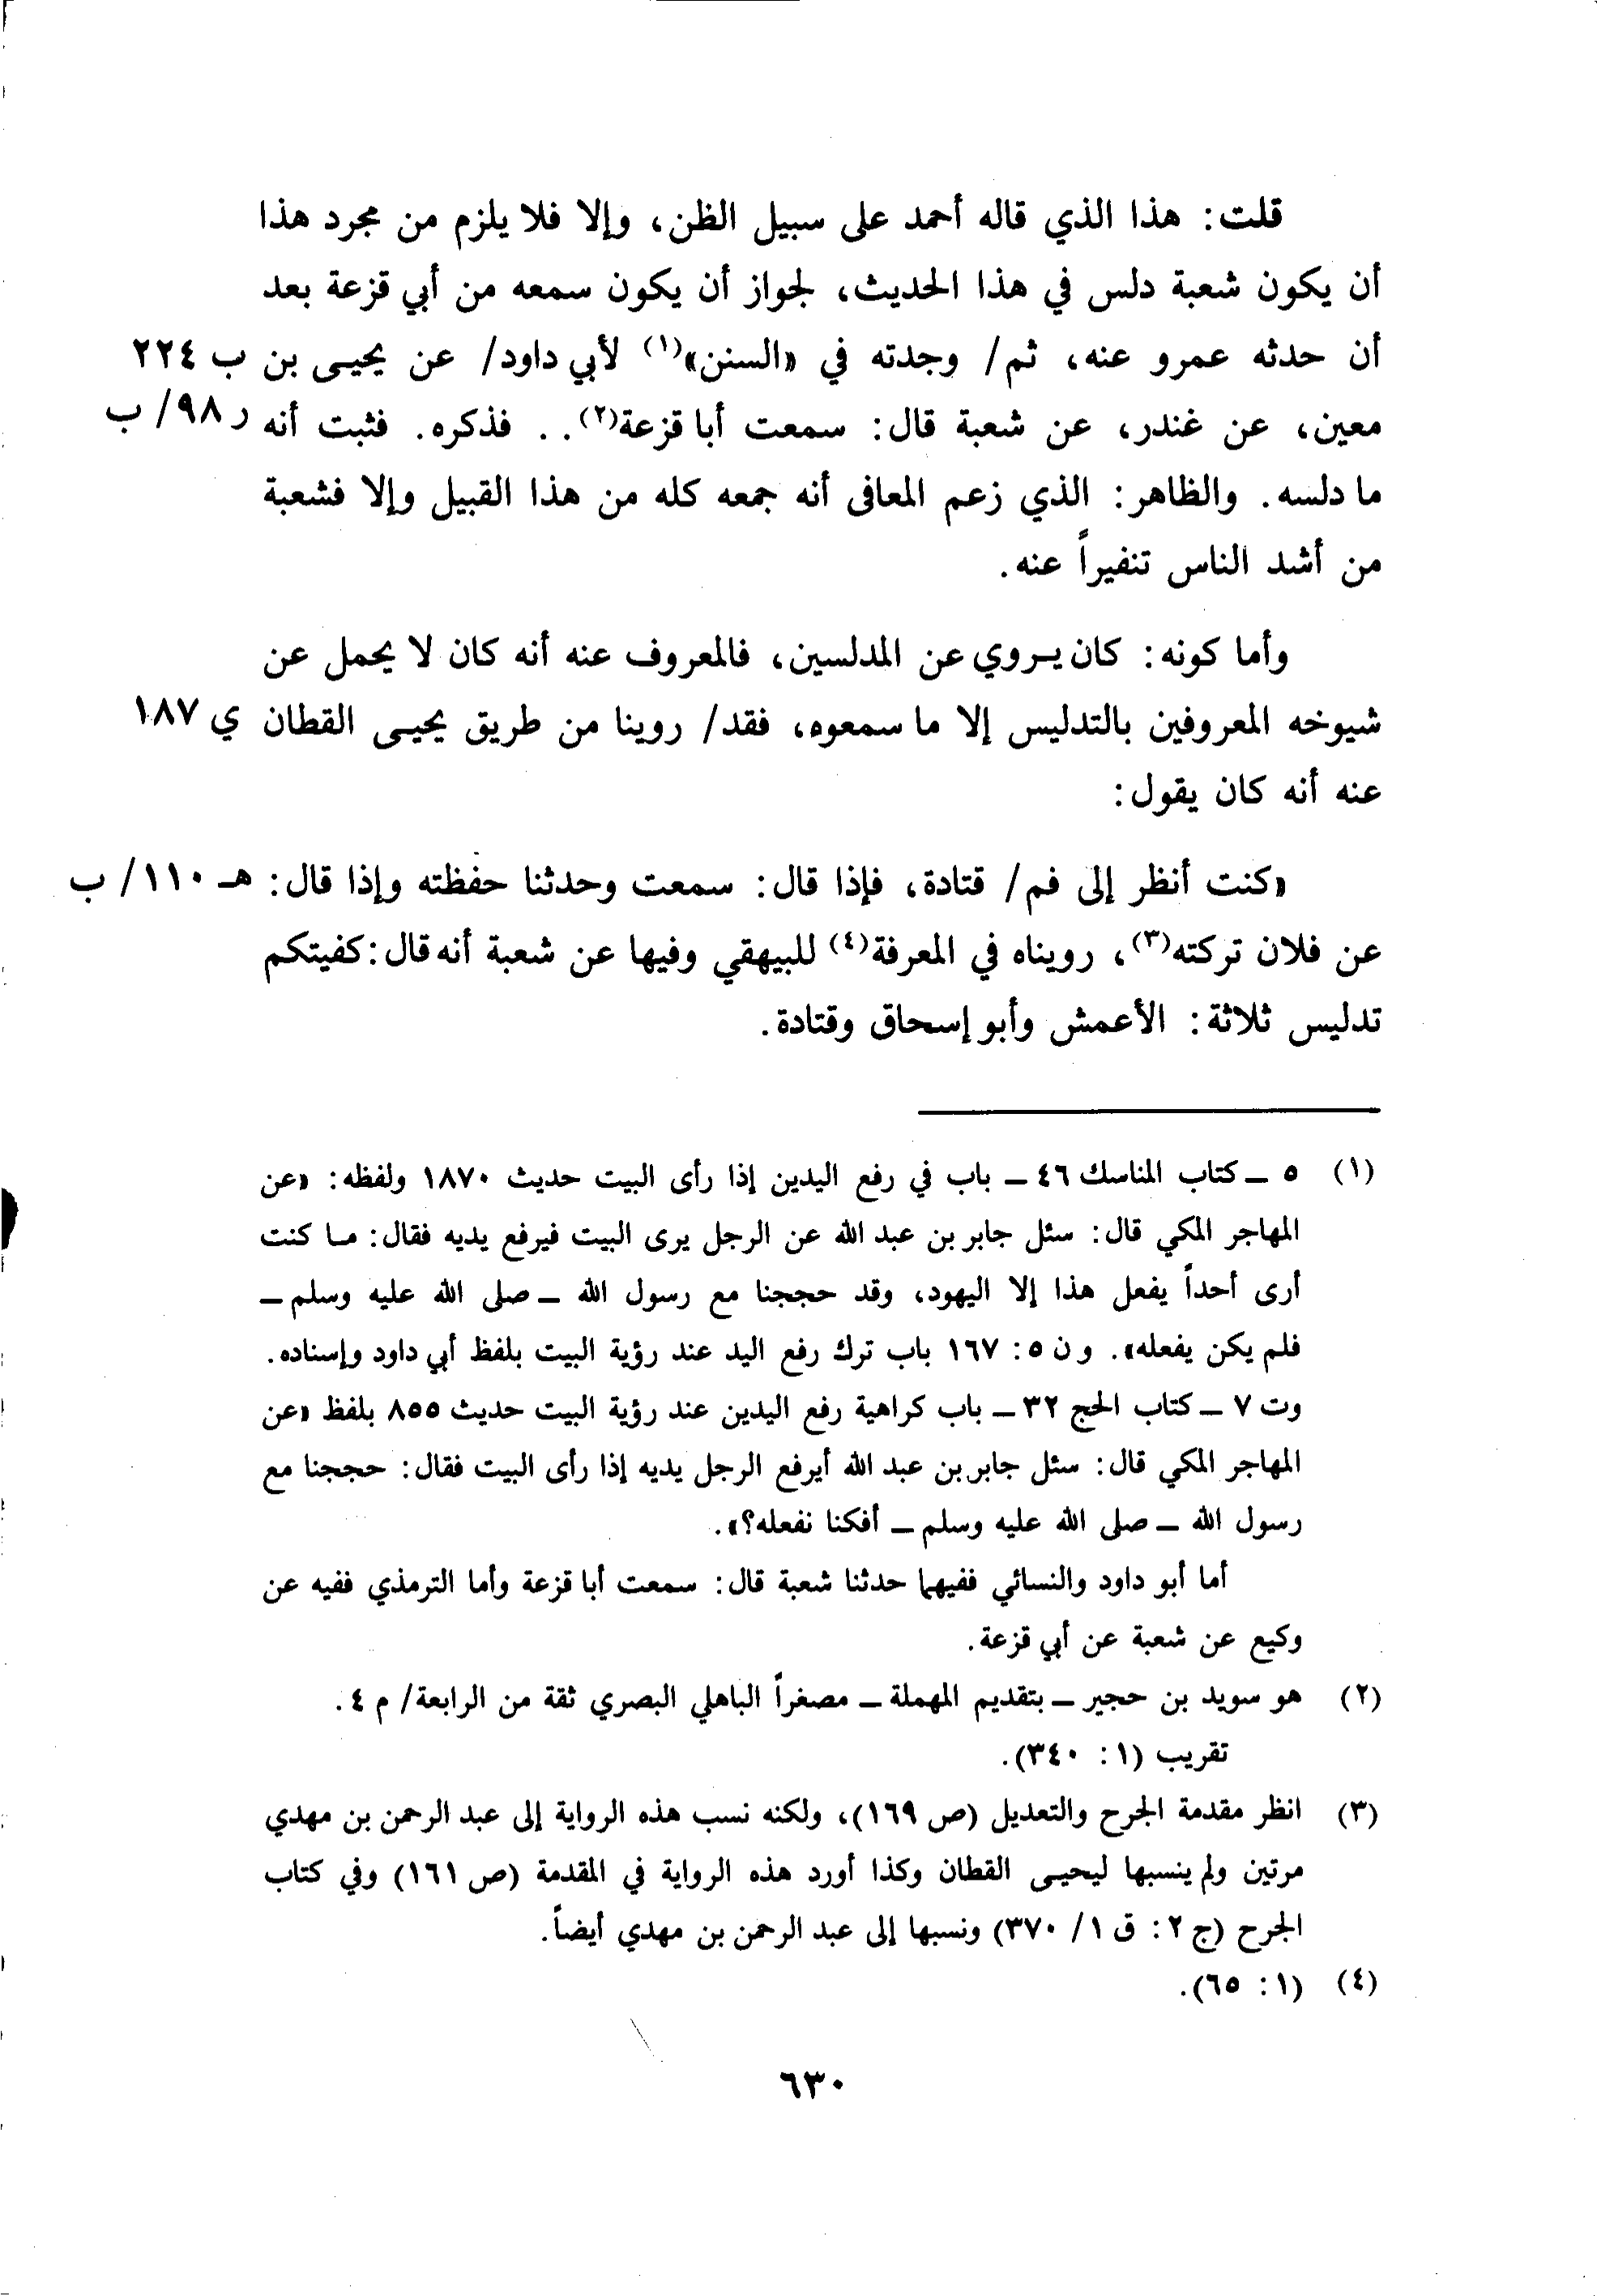 قلت: هذا الذي قاله أحمد على سبيل الظن، وإلا فلا يلزم من مجرد هذا
أن يكون شعبة دلس في هذا الحديث، لجواز أن يكون سمعه من أبي قزعة بعد
أن حدثه عمرو عنه، ثم/ وجدته في «السنن»(١) لأبي داود/ عن يحيى بن ب ٢٢٤
معين، عن غندر، عن شعبة قال: سمعت أبا قزعة(٢).. فذكره. فثبت أنه ر ٩٨/ ب
ما دلسه. والظاهر: الذي زعم المعافى أنه جمعه كله من هذا القبيل وإلا فشعبة
من أشد الناس تنفيراً عنه.
وأما كونه: كان يروي عن المدلسين، فالمعروف عنه أنه كان لا يحمل عن
شيوخه المعروفين بالتدليس إلا ما سمعوه، فقد/ روينا من طريق يحيى القطان ي ١٨٧
عنه أنه كان يقول:
«كنت أنظر إلى فم/ قتادة، فإذا قال: سمعت وحدثنا حفظته وإذا قال: هـ ١١٠/ ب
عن فلان تركته(٣)، رويناه في المعرفة(٤) للبيهقي وفيها عن شعبة أنه قال: كفيتكم
تدليس ثلاثة: الأعمش وأبو إسحاق وقتادة.
(١) ٥ ـ كتاب المناسك ٤٦ ـ باب في رفع اليدين إذا رأى البيت حديث ١٨٧٠ ولفظه: «عن
المهاجر المكي قال: سئل جابر بن عبد الله عن الرجل يرى البيت فيرفع يديه فقال: ما كنت
أرى أحداً يفعل هذا إلا اليهود، وقد حججنا مع رسول الله ـ صلى الله عليه وسلم ـ
فلم يكن يفعله». و ن ٥: ١٦٧ باب ترك رفع اليد عند رؤية البيت بلفظ أبي داود وإسناده.
وت ٧ ـ كتاب الحج ٣٢ ـ باب كراهية رفع اليدين عند رؤية البيت حديث ٨٥٥ بلفظ «عن
المهاجر المكي قال: سئل جابر بن عبد الله أيرفع الرجل يديه إذا رأى البيت فقال: حججنا مع
رسول الله ـ صلى الله عليه وسلم ـ أفكنا نفعله؟».
أما أبو داود والنسائي ففيهما حدثنا شعبة قال: سمعت أبا قزعة وأما الترمذي ففيه عن
وكيع عن شعبة عن أبي قزعة.
(٢) هو سويد بن حجير ـ بتقديم المهملة ـ مصغراً الباهلي البصري ثقة من الرابعة/ م ٤.
تقريب (١: ٣٤٠).
(٣) انظر مقدمة الجرح والتعديل (ص ١٦٩)، ولكنه نسب هذه الرواية إلى عبد الرحمن بن مهدي
مرتين ولم ينسبها ليحيى القطان وكذا أورد هذه الرواية في المقدمة (ص ١٦١) وفي كتاب
الجرح (ج ٢: ق ١/ ٣٧٠) ونسبها إلى عبد الرحمن بن مهدي أيضاً.
(٤) (١: ٦٥).
٦٣٠